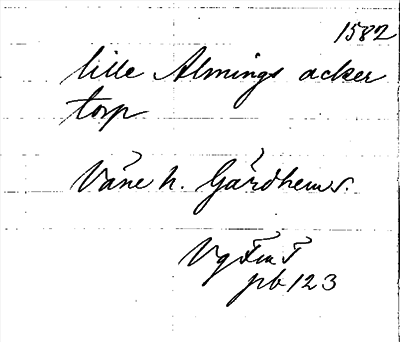 1582
lille Almings acker
torp
Väne h. Gärdhem s.
Vg Fm T
pb 123